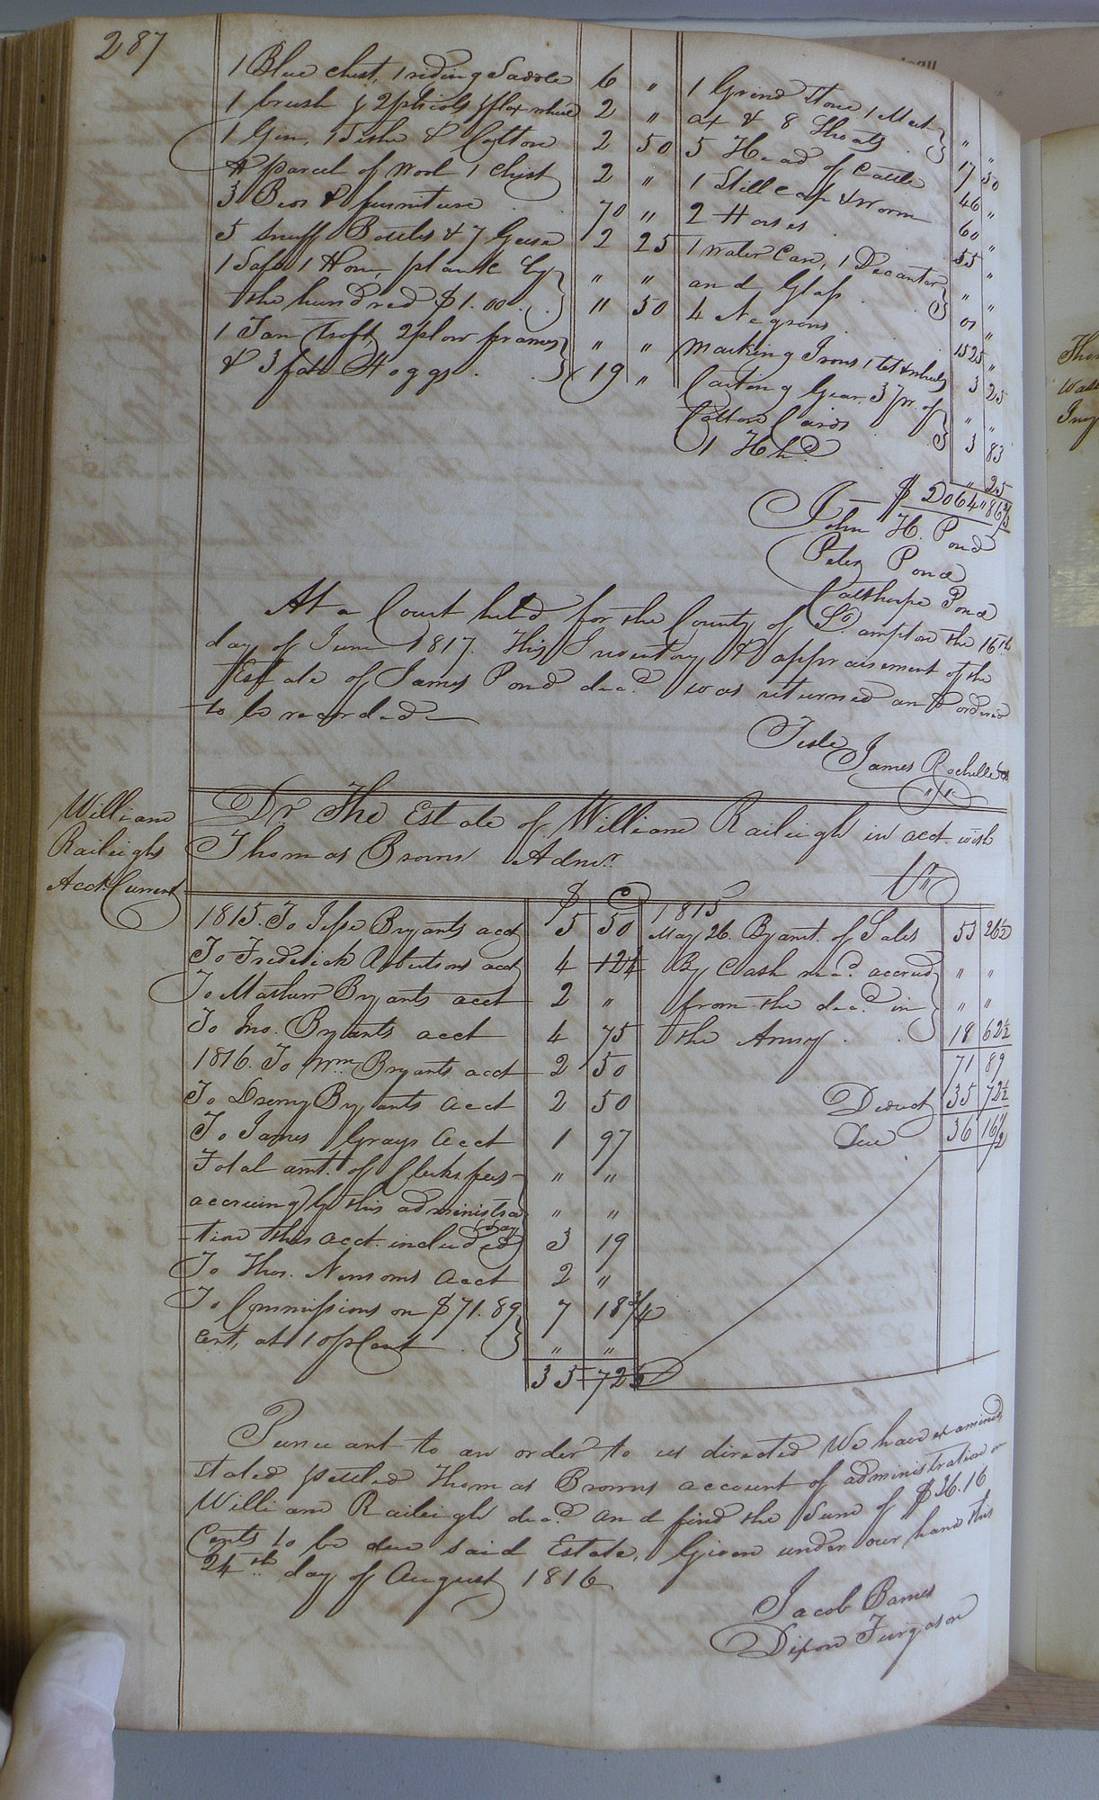 287
1 Blue chest, 1 riding Saddle 6 "
1 brush & 2 phials & flax wheel 2 "
1 Gun, 1 Sithe & Cotton 2 50
A parcel of wool 1 Chest 2 "
3 Beds & furniture 70 "
5 Snuff Bottles & 7 Geese 2 25
1 Safe 1 Hone, plank by " "
the hundred $1.00 " 50
1 Tan Troft 2 plow frames " "
& 3 fat Hoggs 19 "
1 Grind Stone 1 Meat
ax & 8 Shoats 17 50
5 Head of Cattle 46 "
1 Still cap & worm 60 "
2 Horses 55 "
1 Water Can, 1 Decanter " "
and Glass "
4 Negroes 1525 "
marking Irons 1 3 25
Carting Gear 3 pr. of " "
Cotton Cards 3 83
1 Hhd. " 25
$ 2064 " 86
John H. Pond
Peter Pond
Calthorpe Pond
At a Court held for the County of So.ampton the 16th
day of June 1817. This Inventory & appraisement of the
Estate of James Pond decd. was returned and ordered
to be recorded
Teste
James Rochelle
William
Raileighs
Acct. Current
Dr. The Estate of William Raileigh in acct. with
Thomas Brown Admr.
Cr
$ C
1815. To Jesse Bryants acct 5 50
To Frederick Albertsons acct 4 12½
To Mathew Bryants acct 2 "
To Jno. Bryants acct 4 75
1816. To Wm. Bryants acct 2 50
To Drewry Bryants acct 2 50
To James Grays Acct 1 97
Total amt. of Clerks fees " "
accruing by this administra " "
tion this acct. included 3 19
To Thos. Newsoms Acct 2 "
To Commissions on $71.89 7 18¾
cent, at 10 p Cent " "
35 72½
1815
May 26. By amt. of Sales 53 26½
By Cash recd. accrued " "
from the decd. in " "
the Army 18 62½
71 89
Deduct 35 72½
Due 36 16½
Pursuant to an order to us directed We have examined
stated & settled Thomas Browns account of administration on
William Raileigh decd. and find the Sum of $36.16
Cents to be due said Estate, Given under our hand this
24th. day of August 1816
Jacob Barnes
Dixon Turgason